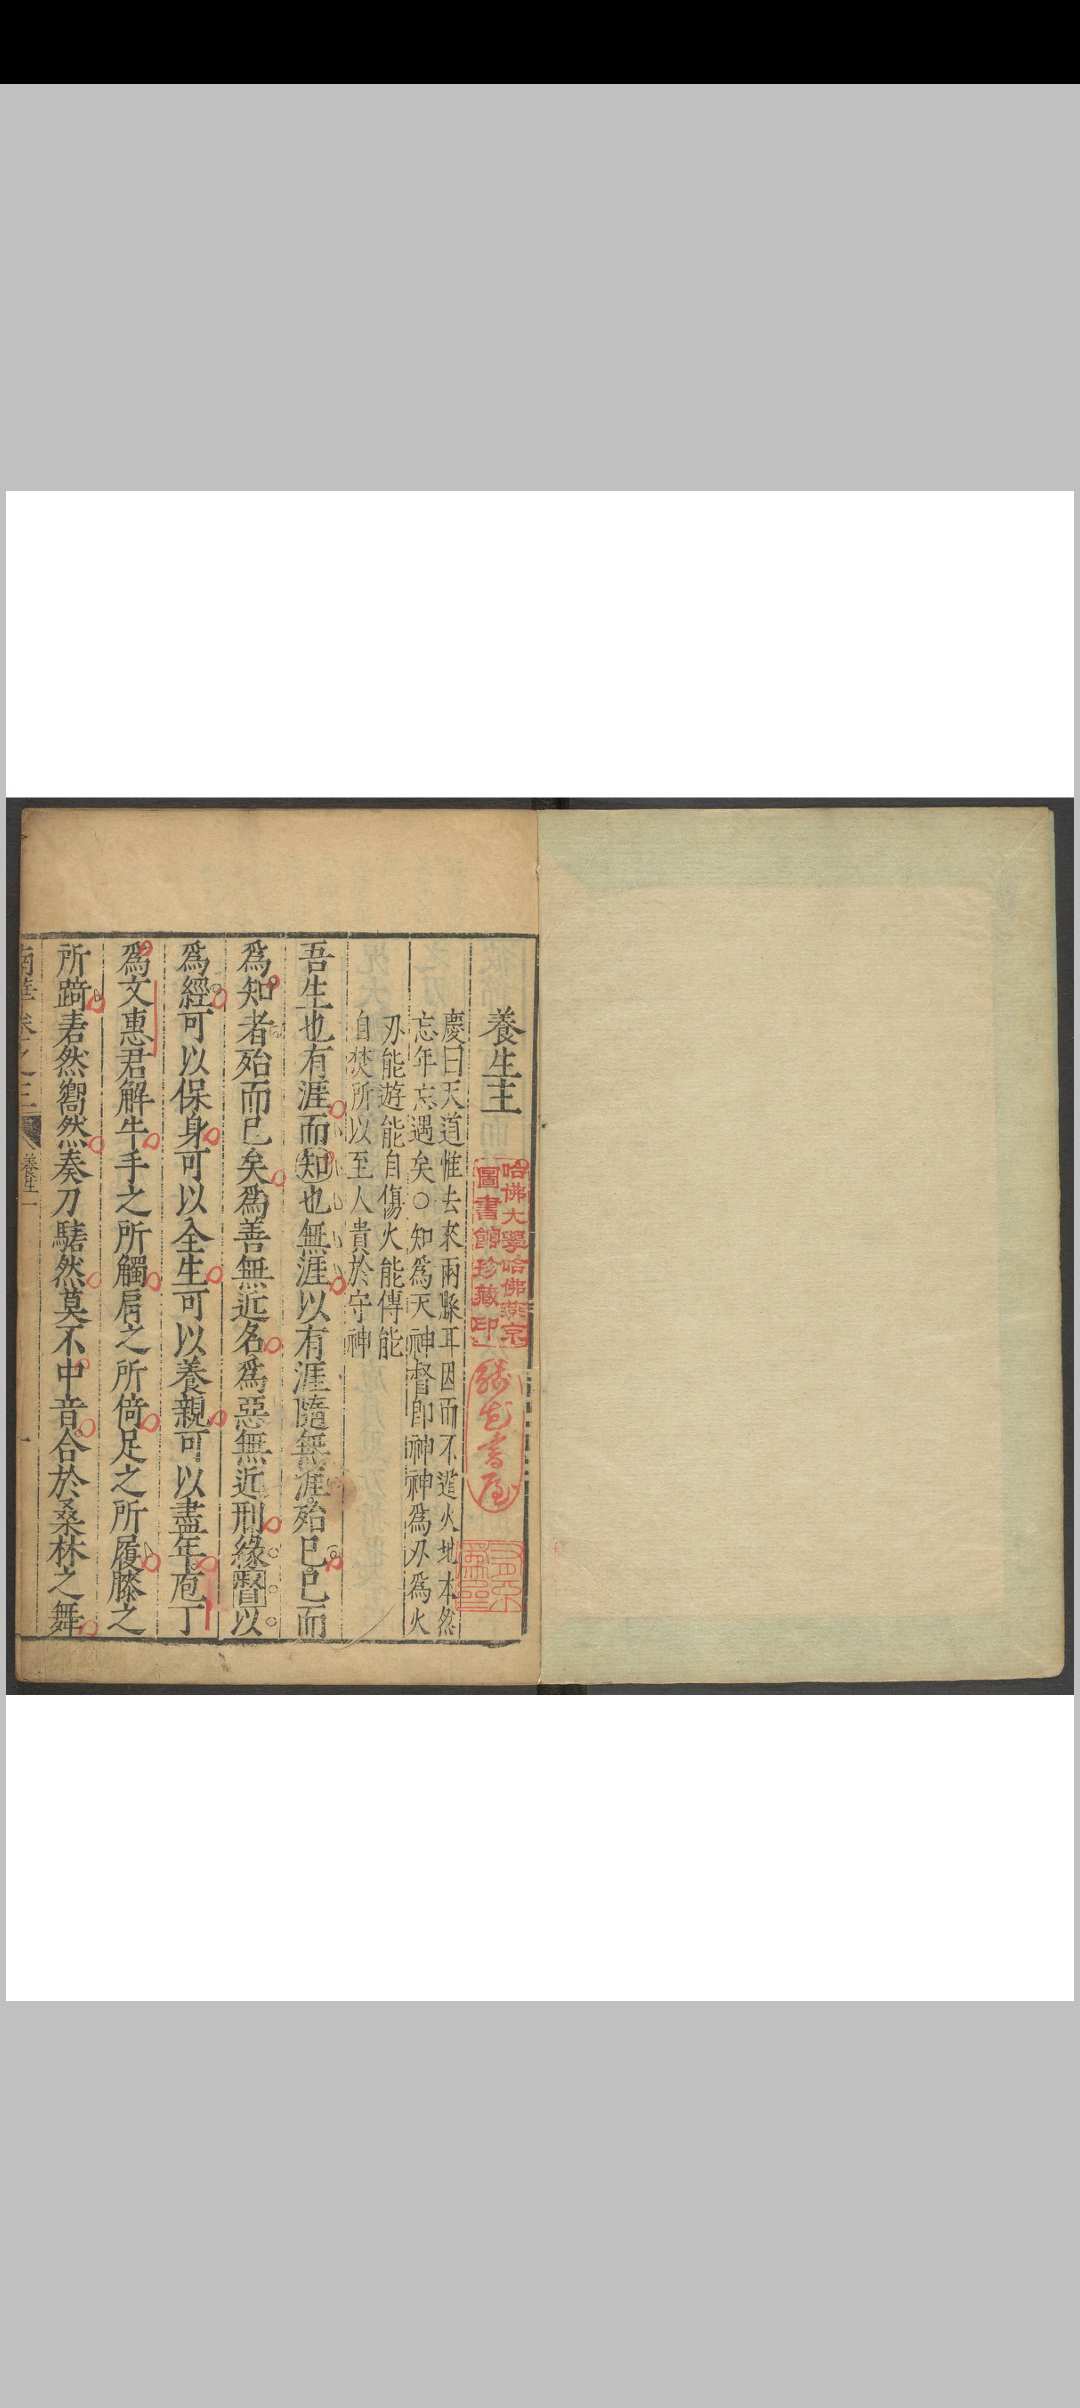 養生主
慶曰天道惟去來兩縣耳因而不遣火地本然
忘年忘遇矣○知爲天神督卽神神爲刃爲火
刃能遊能自傷火能傳能
自焚所以至人貴於守神
吾生也有涯而知也無涯以有涯隨無涯殆已已而
爲知者殆而已矣爲善無近名爲惡無近刑緣督以
爲經可以保身可以全生可以養親可以盡年庖丁
爲文惠君解牛手之所觸肩之所倚足之所履膝之
所踦砉然嚮然奏刀騞然莫不中音合於桑林之舞
南華卷之三
養生
一
哈佛大學哈佛燕京
圖書館珍藏印
書屋